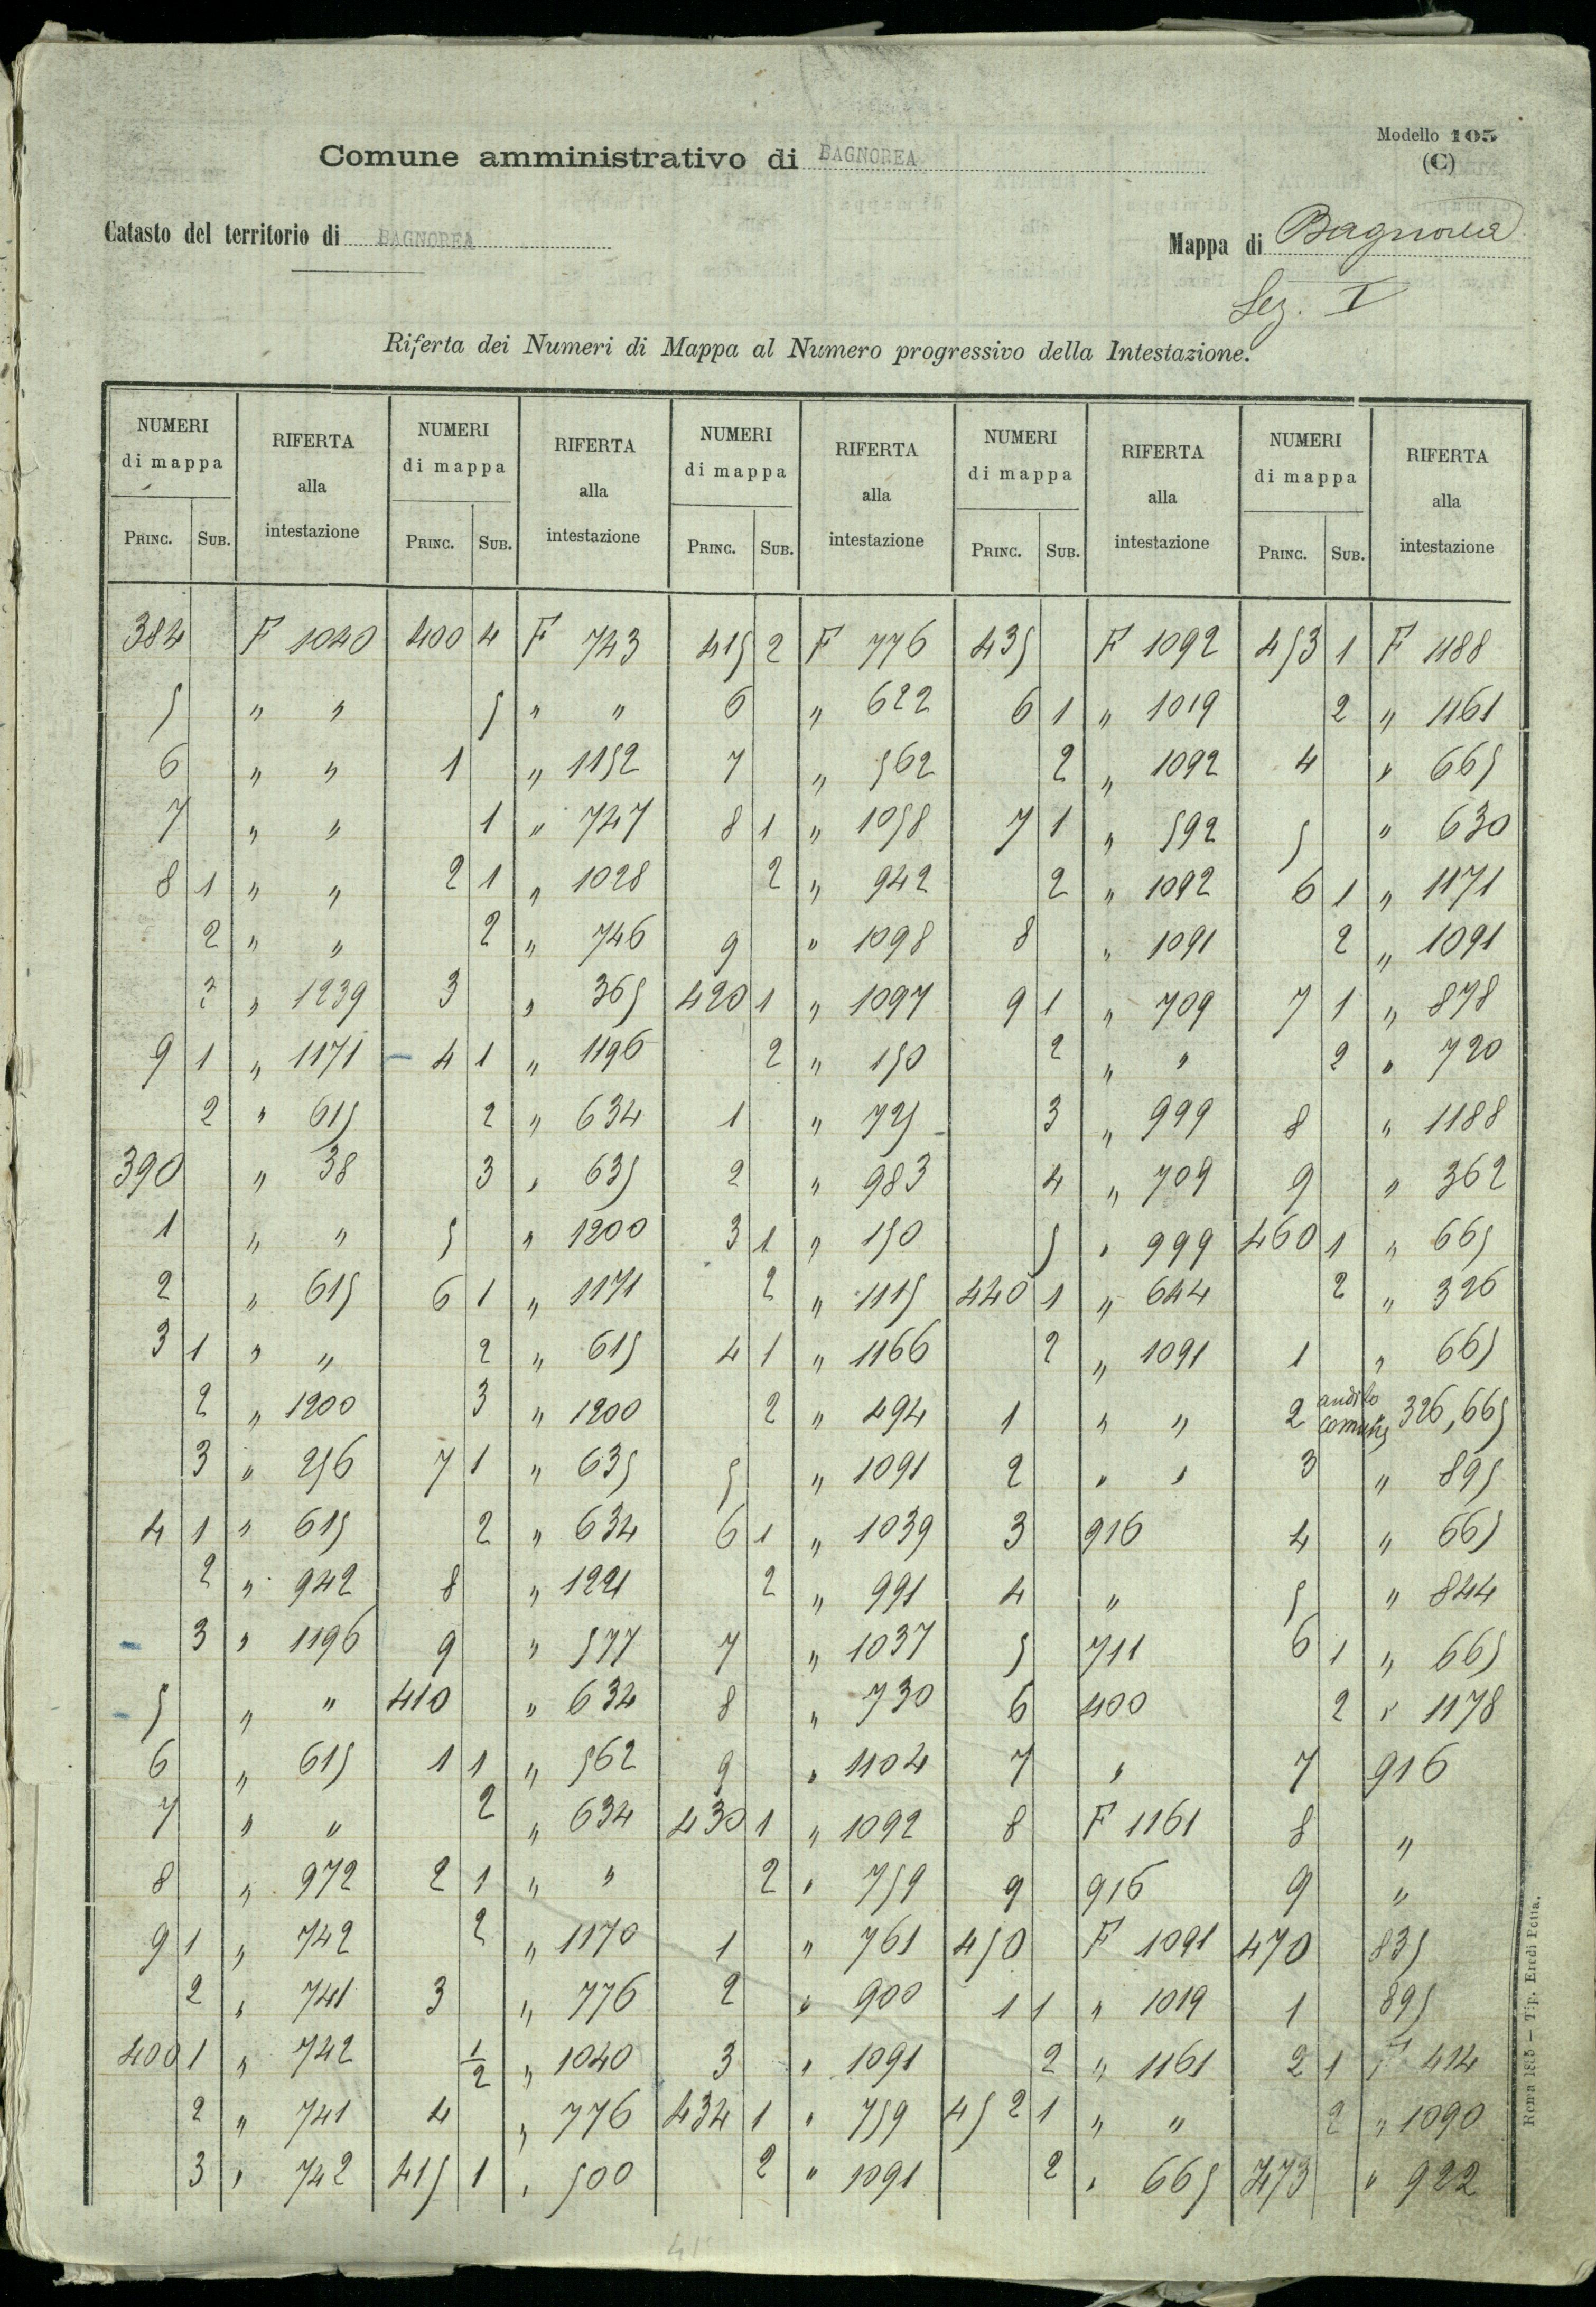 Modello 105
(C)
Comune amministrativo di BAGNOREA
Catasto del territorio di BAGNOREA
Mappa di Bagnorea
Sez. I
Riferta dei Numeri di Mappa al Numero progressivo della Intestazione.
NUMERI di mappa RIFERTA alla intestazione NUMERI di mappa RIFERTA alla intestazione NUMERI di mappa RIFERTA alla intestazione NUMERI di mappa RIFERTA alla intestazione NUMERI di mappa RIFERTA alla intestazione
PRINC. SUB. PRINC. SUB. PRINC. SUB. PRINC. SUB. PRINC. SUB.
384 F 1040 400 4 F 743 415 2 F 776 435 F 1092 453 1 F 1188
5 " " 5 " " 6 " 622 6 1 " 1019 2 " 1161
6 " " 1 " 1152 7 " 562 2 " 1092 4 " 665
7 " " 1 " 747 8 1 " 1058 7 1 " 592 5 " 630
8 1 " " 2 1 " 1028 2 " 942 2 " 1092 6 1 " 1171
2 " " 2 " 746 9 " 1098 8 " 1091 2 " 1091
3 " 1239 3 " 365 420 1 " 1097 9 1 " 709 7 1 " 878
9 1 " 1171 4 1 " 1196 2 " 150 2 " " 2 " 720
2 " 615 2 " 634 1 " 725 3 " 999 8 " 1188
390 " 38 3 " 635 2 " 983 4 " 709 9 " 362
1 " " 5 " 1200 3 1 " 150 5 " 999 460 1 " 665
2 " 615 6 1 " 1171 2 " 1115 440 1 " 644 2 " 326
3 1 " " 2 " 615 4 1 " 1166 2 " 1091 1 " 665
2 " 1200 3 " 1200 2 " 494 1 " " 2 andito comune 326, 665
3 " 256 7 1 " 635 5 " 1091 2 " " 3 " 895
4 1 " 615 2 " 634 6 1 " 1039 3 916 4 " 665
2 " 942 8 " 1221 2 " 991 4 " 5 " 844
3 " 1196 9 " 577 7 " 1037 5 711 6 1 " 665
5 " " 410 " 634 8 " 730 6 400 2 " 1178
6 " 615 1 1 " 562 9 " 1104 7 " 7 916
7 " " 2 " 634 430 1 " 1092 8 F 1161 8 "
8 " 972 2 1 " " 2 " 759 9 916 9 "
9 1 " 742 2 " 1170 1 " 761 450 F 1091 470 835
2 " 741 3 " 776 2 " 900 1 1 " 1019 1 895
400 1 " 742 1/2 " 1040 3 " 1091 2 " 1161 2 1 F 414
2 " 741 4 " 776 434 1 " 759 452 1 " " 2 " 1090
3 " 742 415 1 " 500 2 " 1091 2 " 665 473 " 922